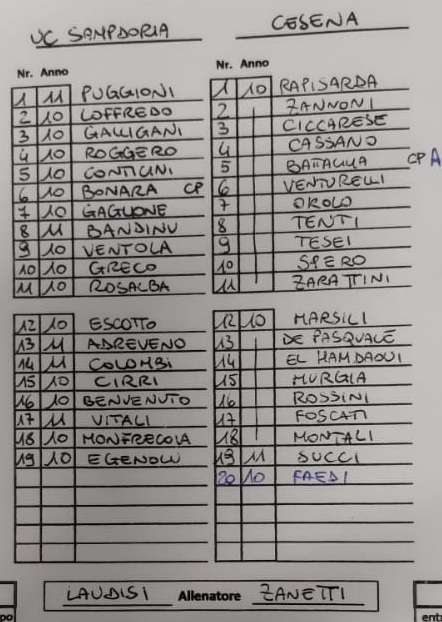 UC SAMPDORIA
Nr. Anno
1 11 PUGGIONI
2 10 LOFFREDO
3 10 GALLIGANI
4 10 ROGGERO
5 10 CONTICINI
6 10 BONARA CP
7 10 GAGLIONE
8 11 BANDINU
9 10 VENTOLA
10 10 GRECO
11 10 ROSALBA
12 10 ESCOTTO
13 11 ADREVENO
14 11 COLOMBI
15 10 CIRRI
16 10 BENVENUTO
17 11 VITALI
18 10 MONFRECOLA
19 10 EGENOLU
CESENA
Nr. Anno
1 10 RAPISARDA
2 ZANNONI
3 CICCARESE
4 CASSANO
5 BATTAGLIA CP A
6 VENTURELLI
7 OROLO
8 TENTI
9 TESEI
10 SPERO
11 ZARATTINI
12 10 MARSILI
13 DE PASQUALE
14 EL HAMDAOUI
15 MURGIA
16 ROSSINI
17 FOSCATI
18 MONTALI
19 11 SUCCI
20 10 FAEDI
LAUDISI Allenatore ZANETTI
po
ent